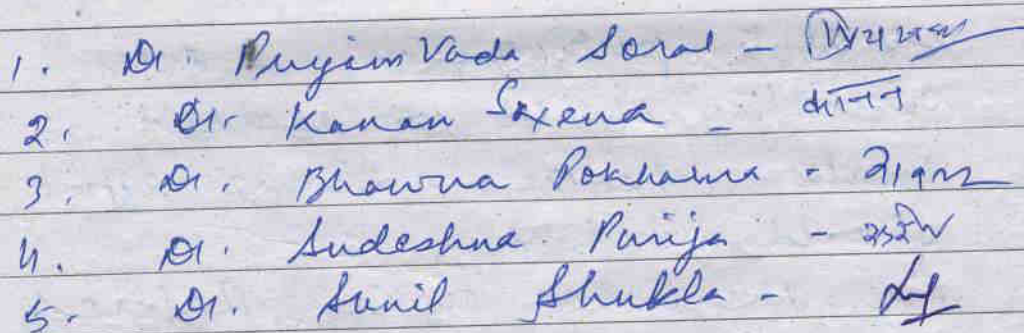 1. Dr. Priyam Vada Soral -
2. Dr. Kanan Saxena - कानन
3. Dr. Bhawna Pokharna -
4. Dr. Sudeshna Punja -
5. Dr. Sunil Shukla -